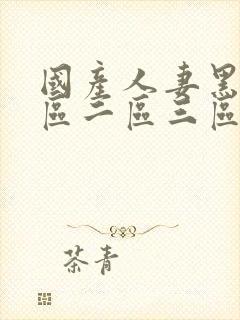 國產人妻黑
區二區三區
茶青